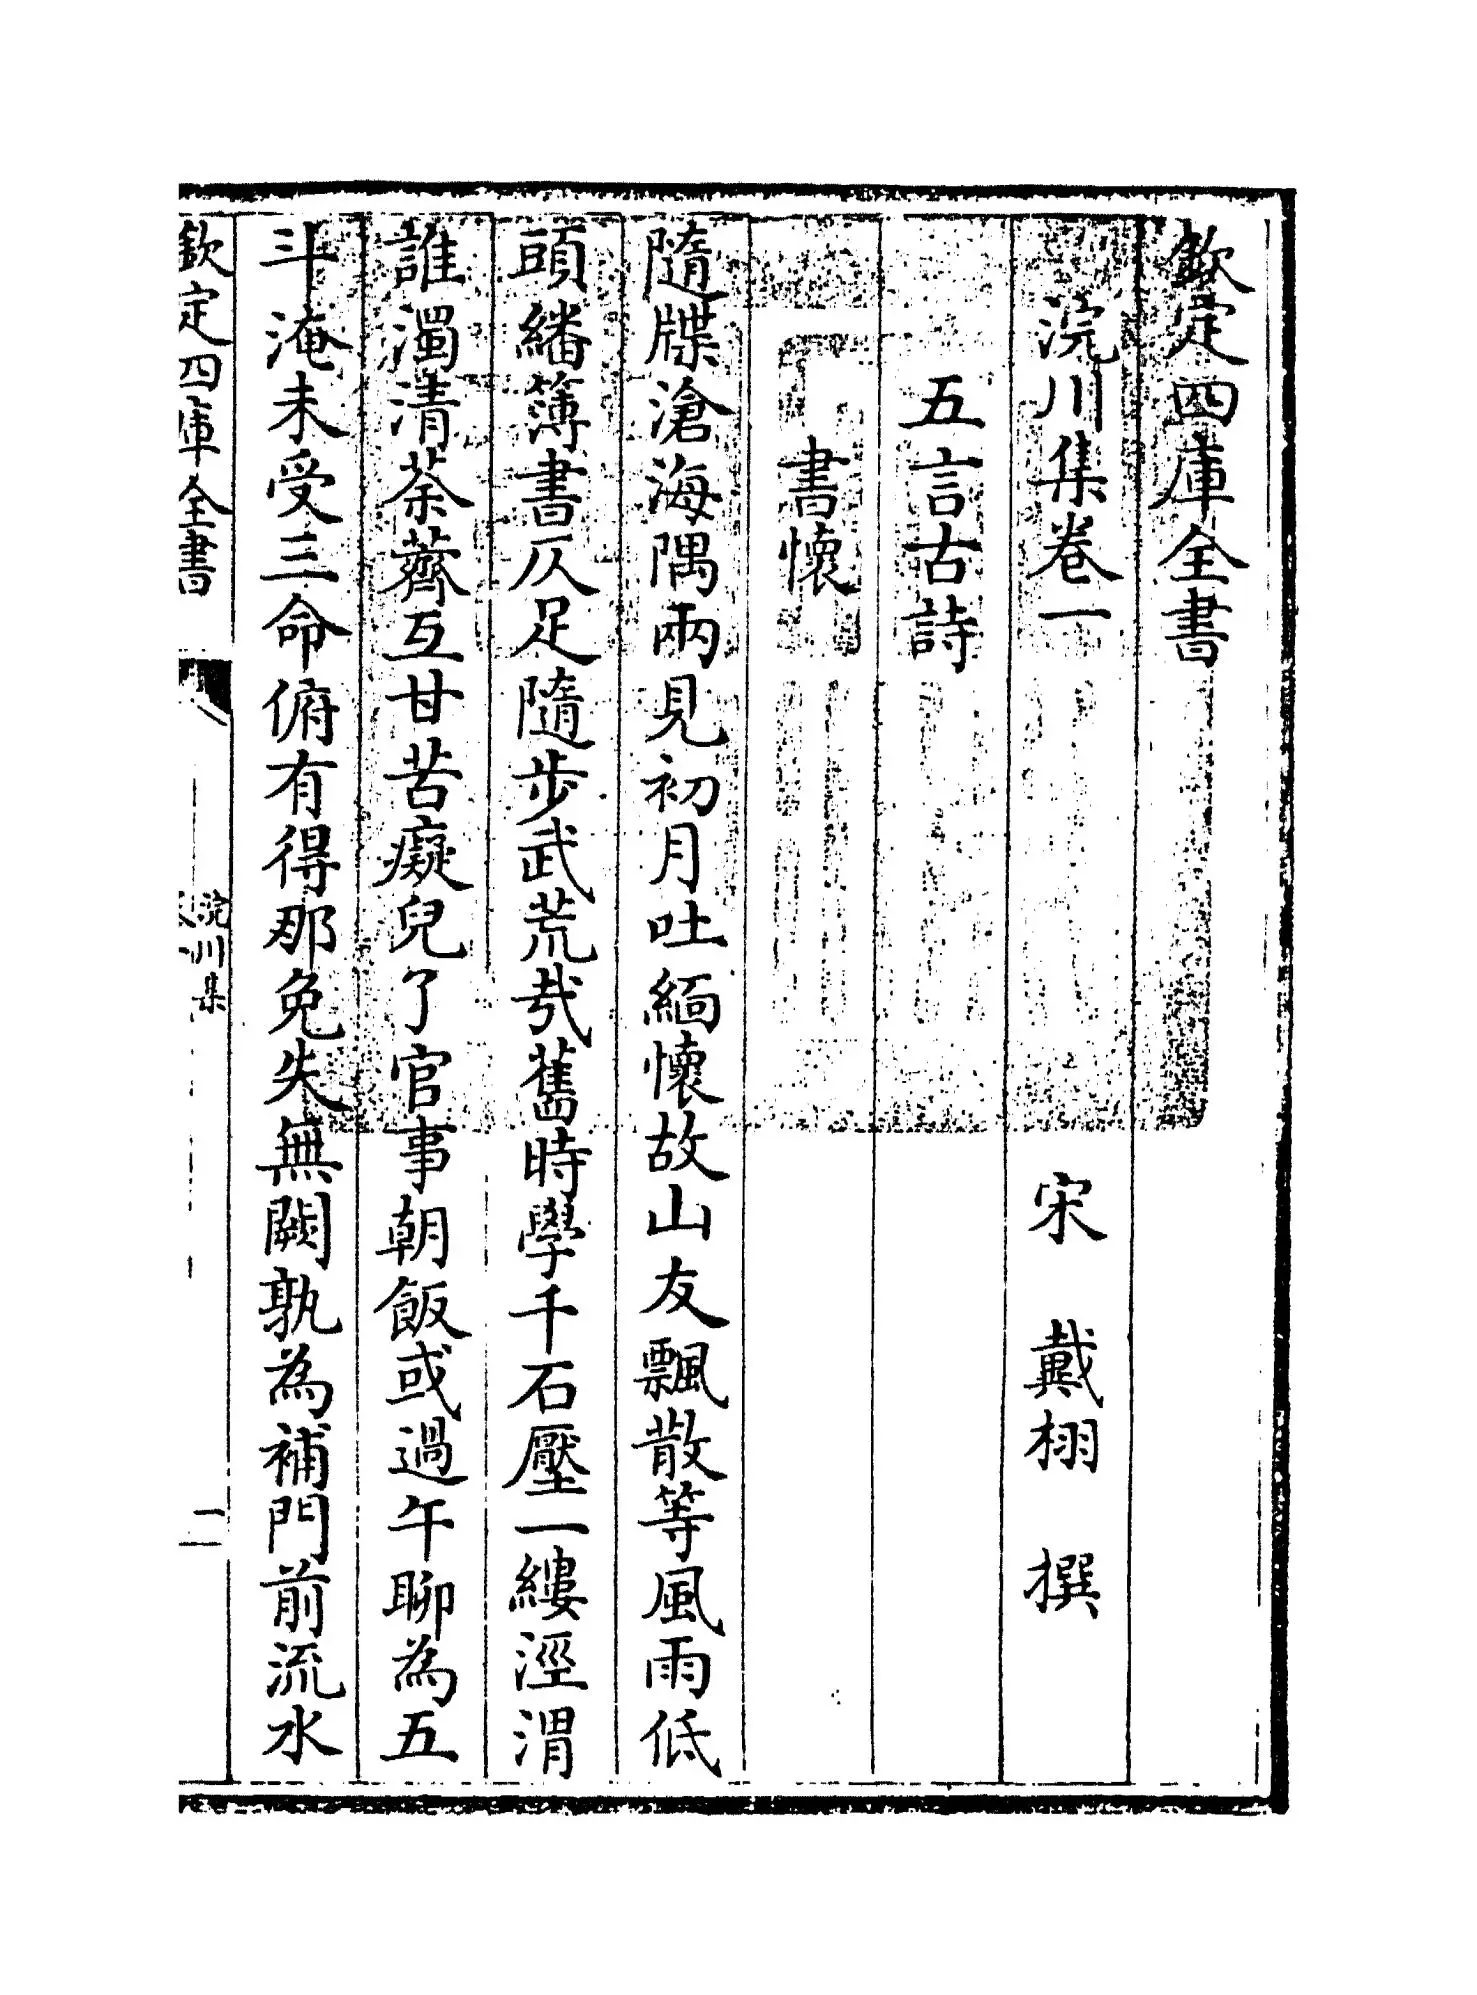 欽定四庫全書
浣川集卷一
宋　戴栩　撰
五言古詩
書懷
隨牒滄海隅兩見初月吐緬懷故山友飄散等風雨低
頭繙簿書仄足隨步武荒哉舊時學千石壓一縷涇渭
誰濁清荼薺互甘苦癡兒了官事朝飯或過午聊為五
斗淹未受三命俯有得那免失無闕孰為補門前流水
欽定四庫全書
浣川集
一